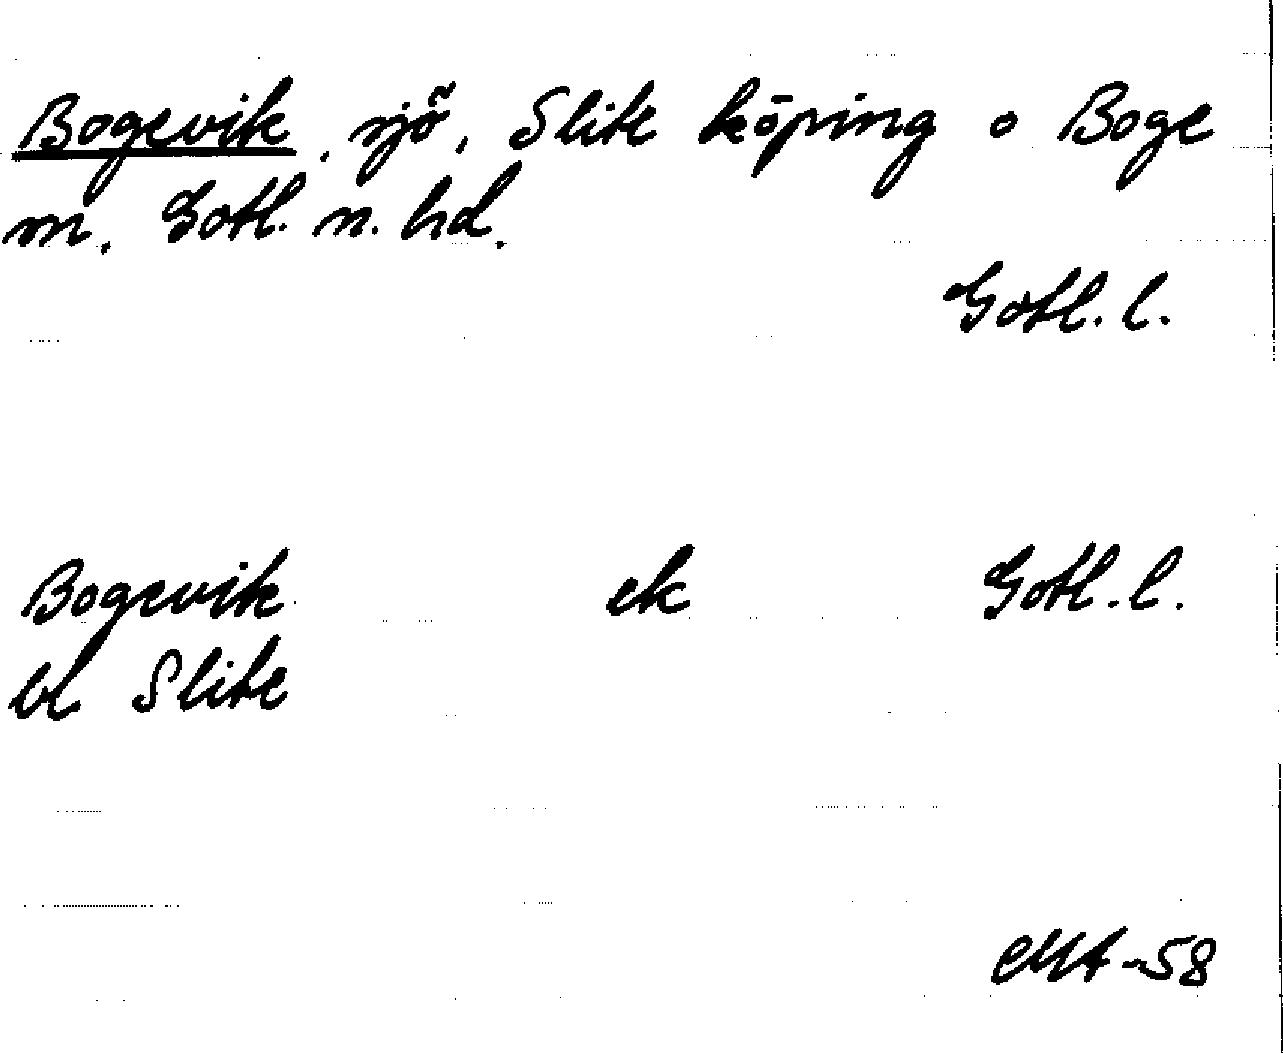 Bogevik, sjö, Slite köping o Boge
sn. Gotl. n. hd.
Gotl. l.
Bogevik ek Gotl. l.
bl Slite
-58